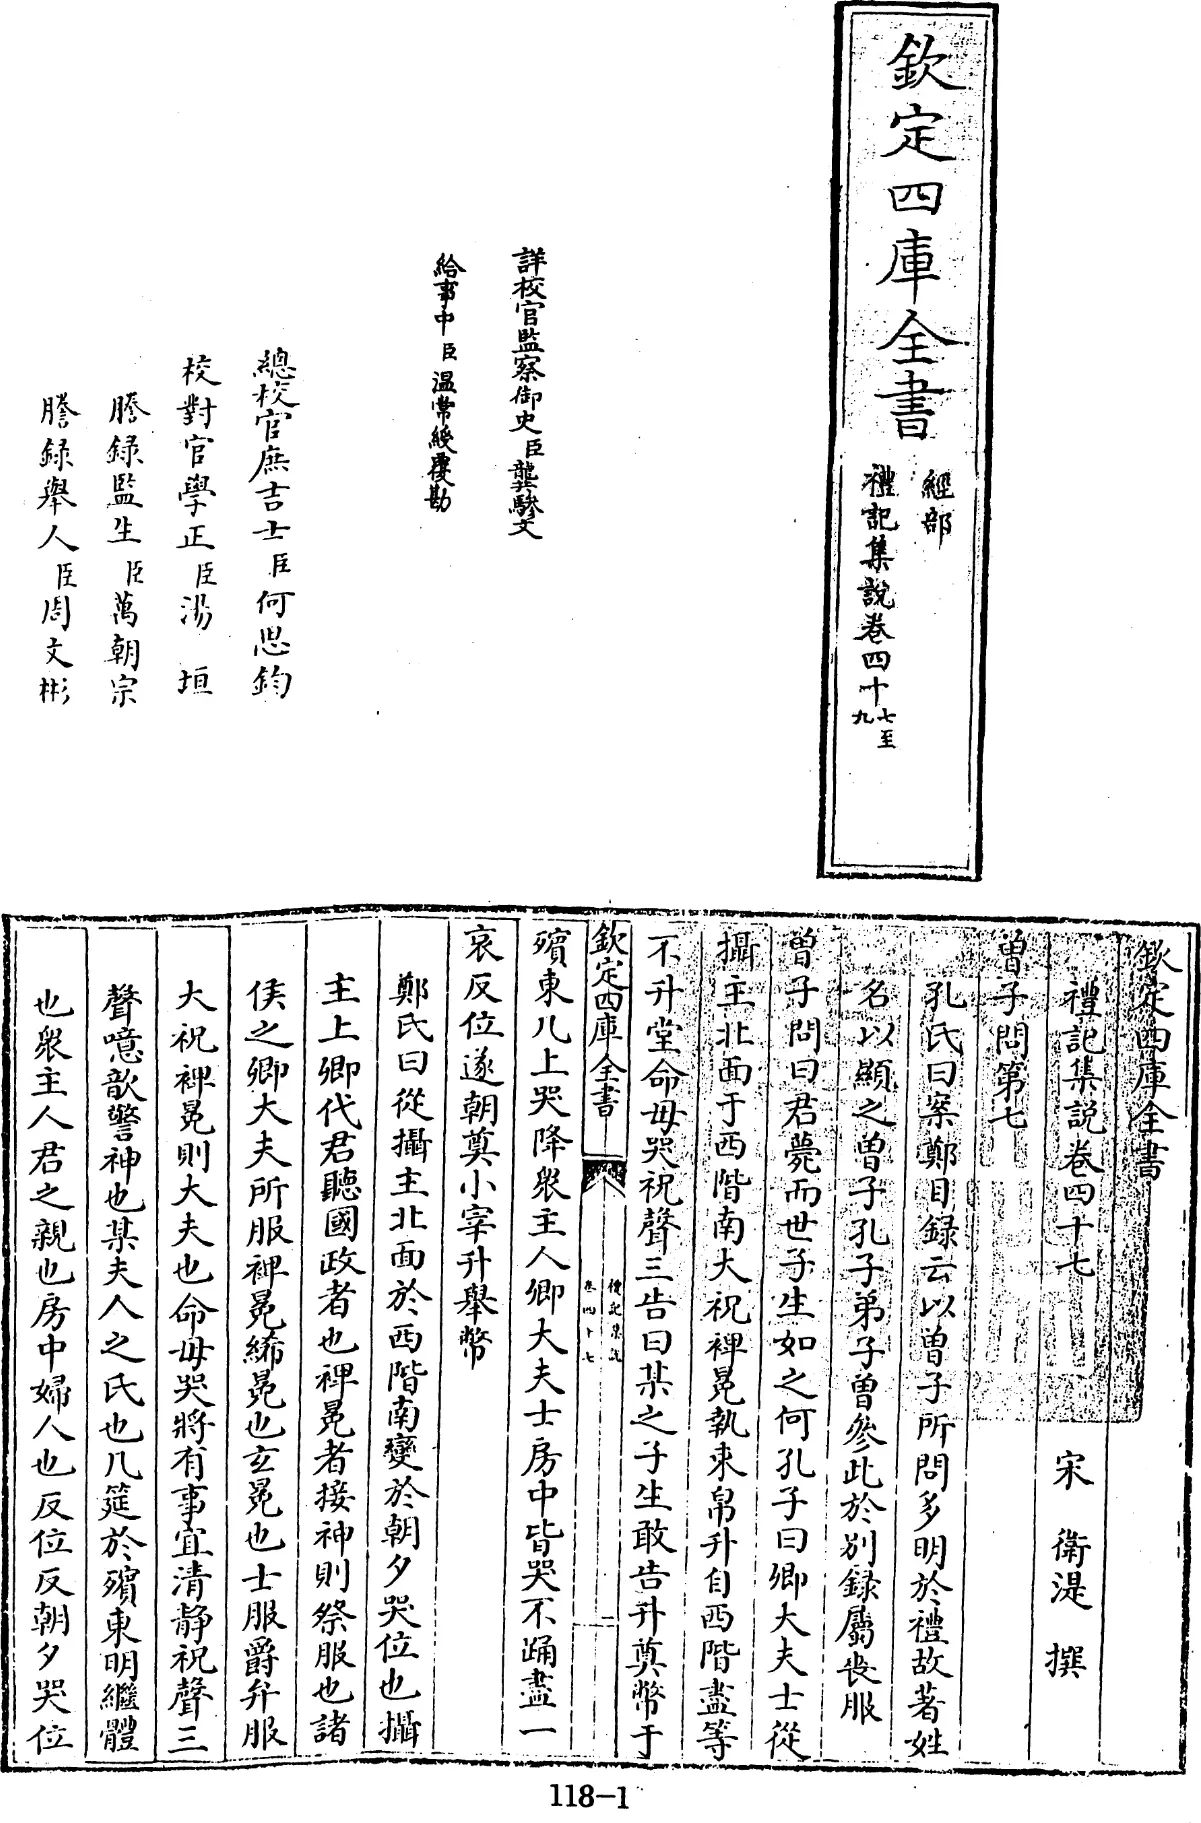 欽定四庫全書
經部
禮記集說卷四十七至
九
詳校官監察御史臣龔驂文
給事中臣温常綬覆勘
總校官庶吉士臣何思鈞
校對官學正臣湯垣
謄錄監生臣萬朝宗
謄錄舉人臣周文彬
欽定四庫全書
禮記集説卷四十七
宋 衛湜 撰
曾子問第七
孔氏曰案鄭目録云以曾子所問多明於禮故著姓
名以顯之曾子孔子弟子曾參此於别録屬喪服
曾子問曰君薨而世子生如之何孔子曰卿大夫士從
攝主北面于西階南大祝裨冕執束帛升自西階盡等
不升堂命毋哭祝聲三告曰某之子生敢告升奠幣于
欽定四庫全書
禮記集説
卷四十七
一
殯東几上哭降衆主人卿大夫士房中皆哭不踊盡一
哀反位遂朝奠小宰升舉幣
鄭氏曰從攝主北面於西階南變於朝夕哭位也攝
主上卿代君聽國政者也裨冕者接神則祭服也諸
侯之卿大夫所服裨冕絺冕也玄冕也士服爵弁服
大祝裨冕則大夫也命毋哭將有事宜清静祝聲三
聲噫歆警神也某夫人之氏也几筵於殯東明繼體
也衆主人君之親也房中婦人也反位反朝夕哭位
118-1